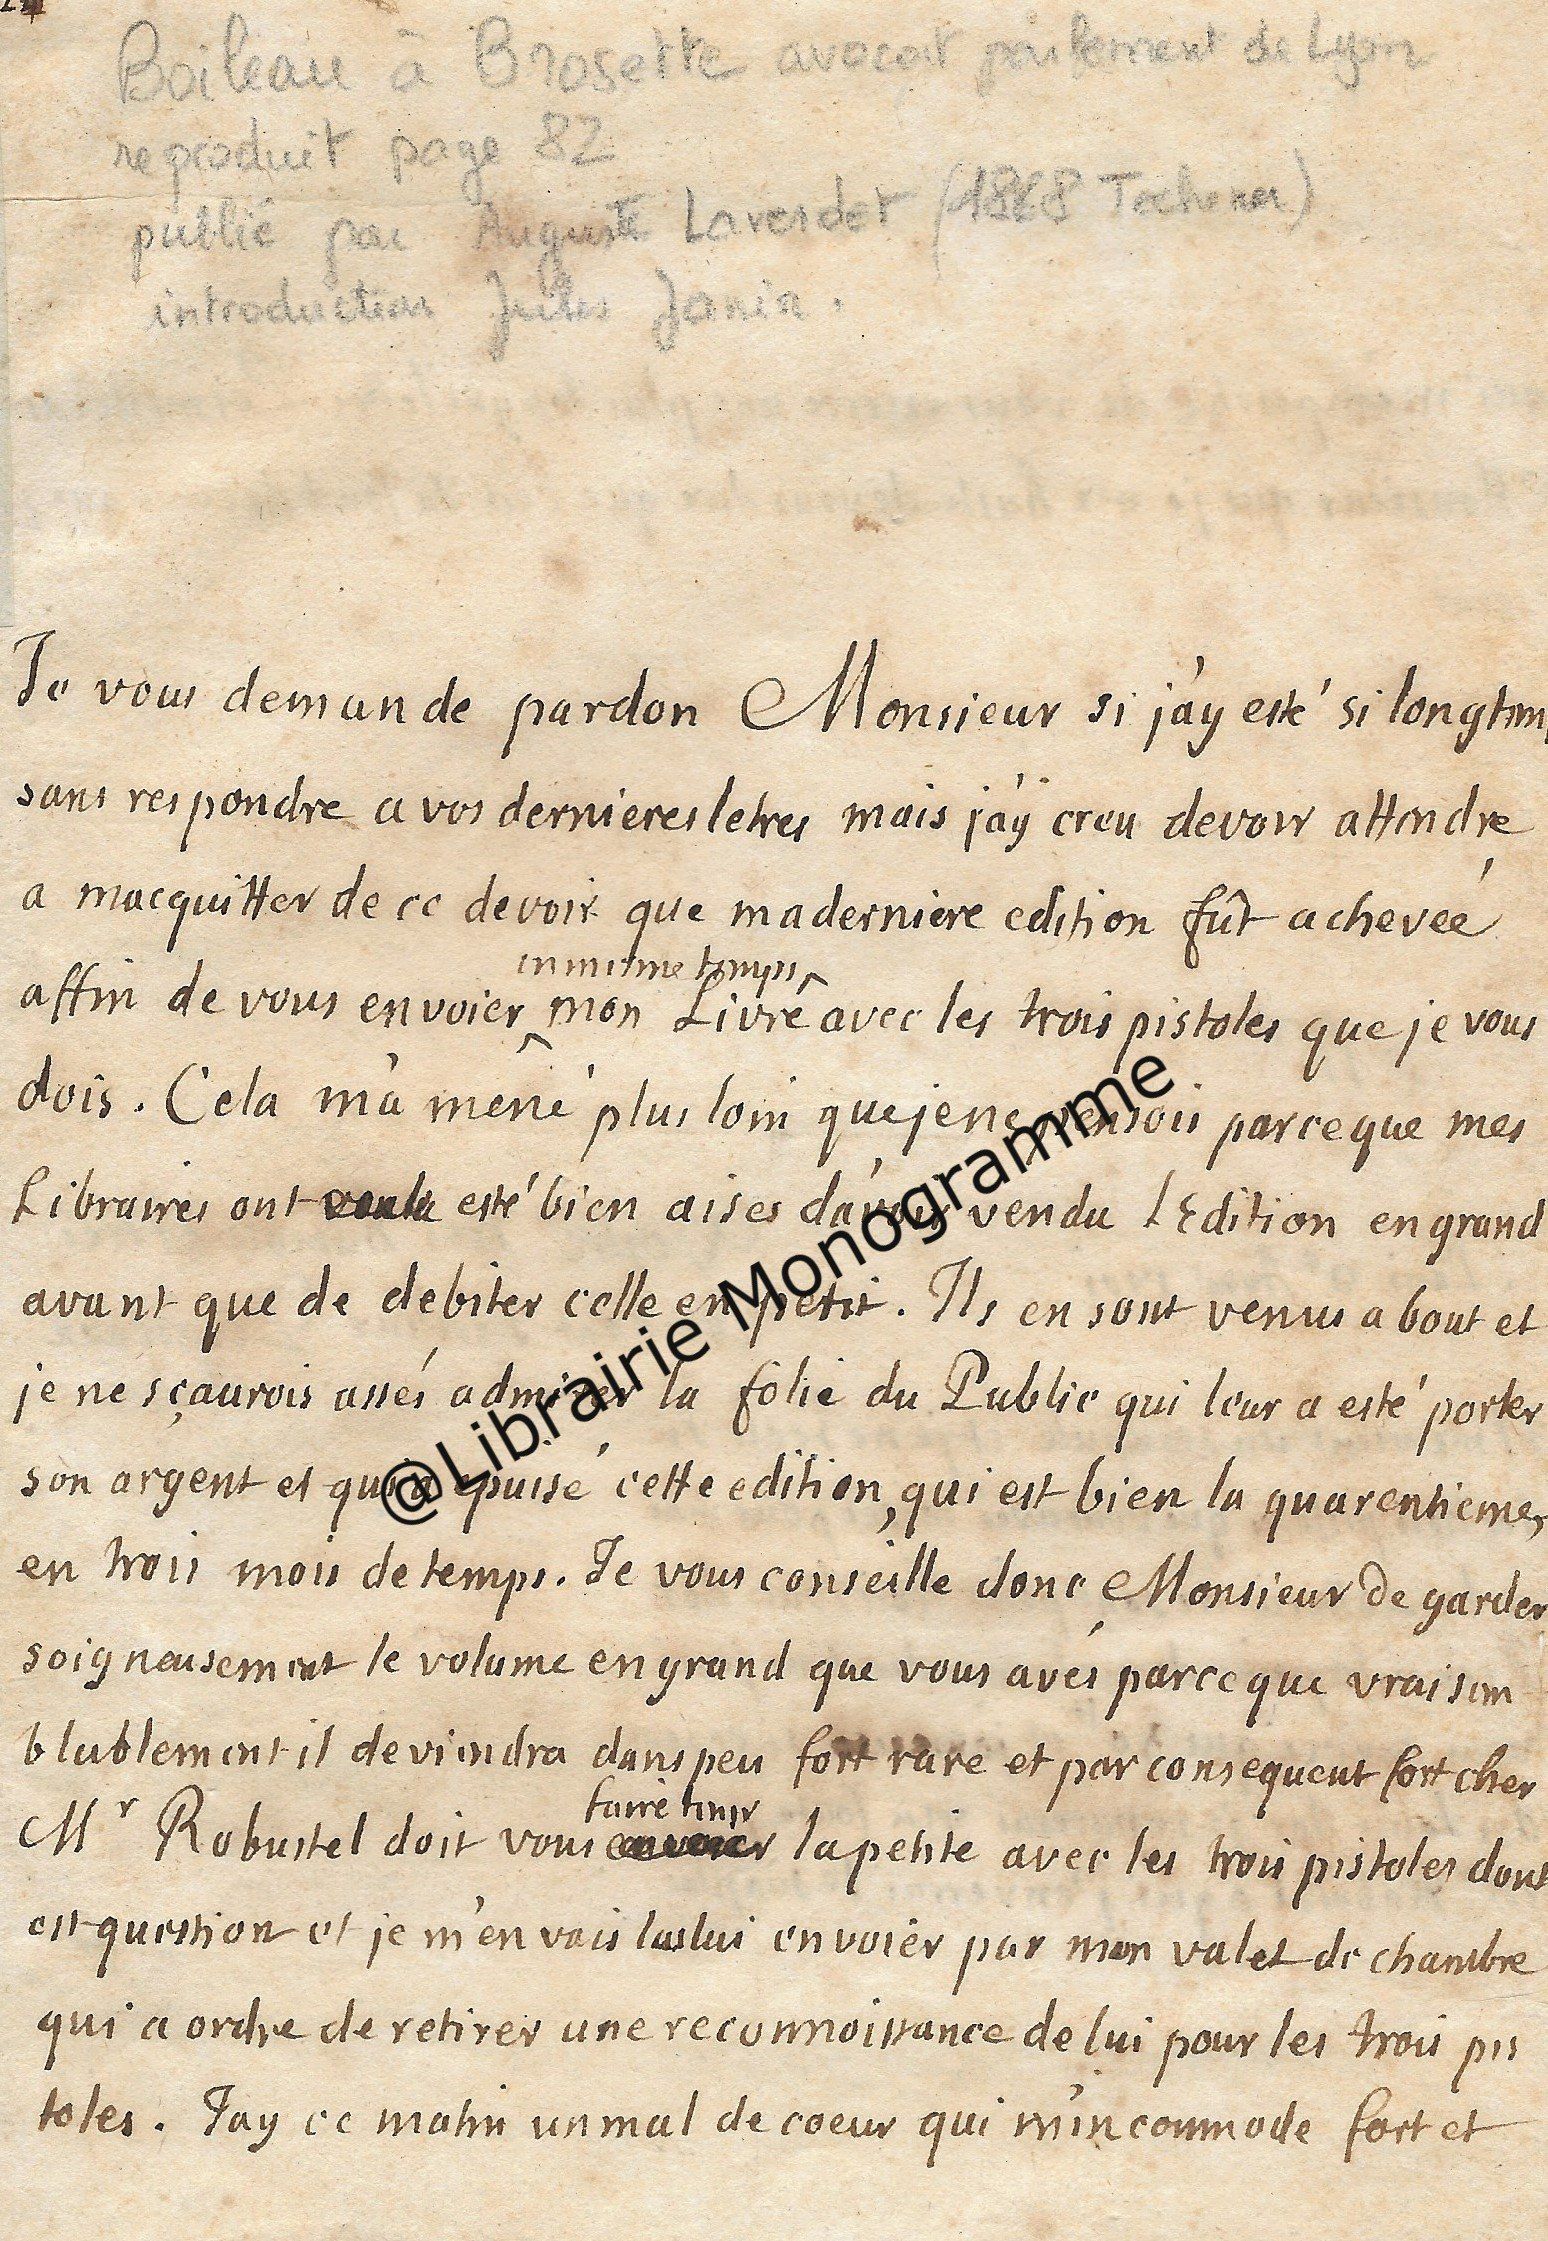 Boileau à Brosette avocat parlement de Lyon
reproduit page 82
publié par Auguste Laverdet (1868 Techener)
introduction Jules Janin.
Je vous demande pardon Monsieur si j'ay esté si longtemps
sans respondre a vos dernieres letres mais j'ay creu devoir attendre
a macquitter de ce devoir que ma derniere edition fût achevée
en mesme temps
affin de vous envoier mon Livre avec les trois pistoles que je vous
dois. Cela m'a mené plus loin que je ne pensois parceque mes
Libraires ont voulu esté bien aises d'avoir vendu l'Edition en grand
avant que de debiter celle en petit. Ils en sont venus a bout et
je ne sçaurois assés admirer la folie du Public qui leur a esté porter
son argent et qui a epuisé cette edition, qui est bien la quarentieme,
en trois mois de temps. Je vous conseille donc Monsieur de garder
soigneusement le volume en grand que vous avés parceque vraisem
blablement il deviendra dans peu fort rare et par consequent fort cher
faire tenir
Mr Robustel doit vous envoier la petite avec les trois pistoles dont
est question et je m'en vais les lui envoier par mon valet de chambre
qui a ordre de retirer une reconnoissance de lui pour les trois pis
toles. J'ay ce matin un mal de coeur qui m'incommode fort et
@Librairie Monogramme